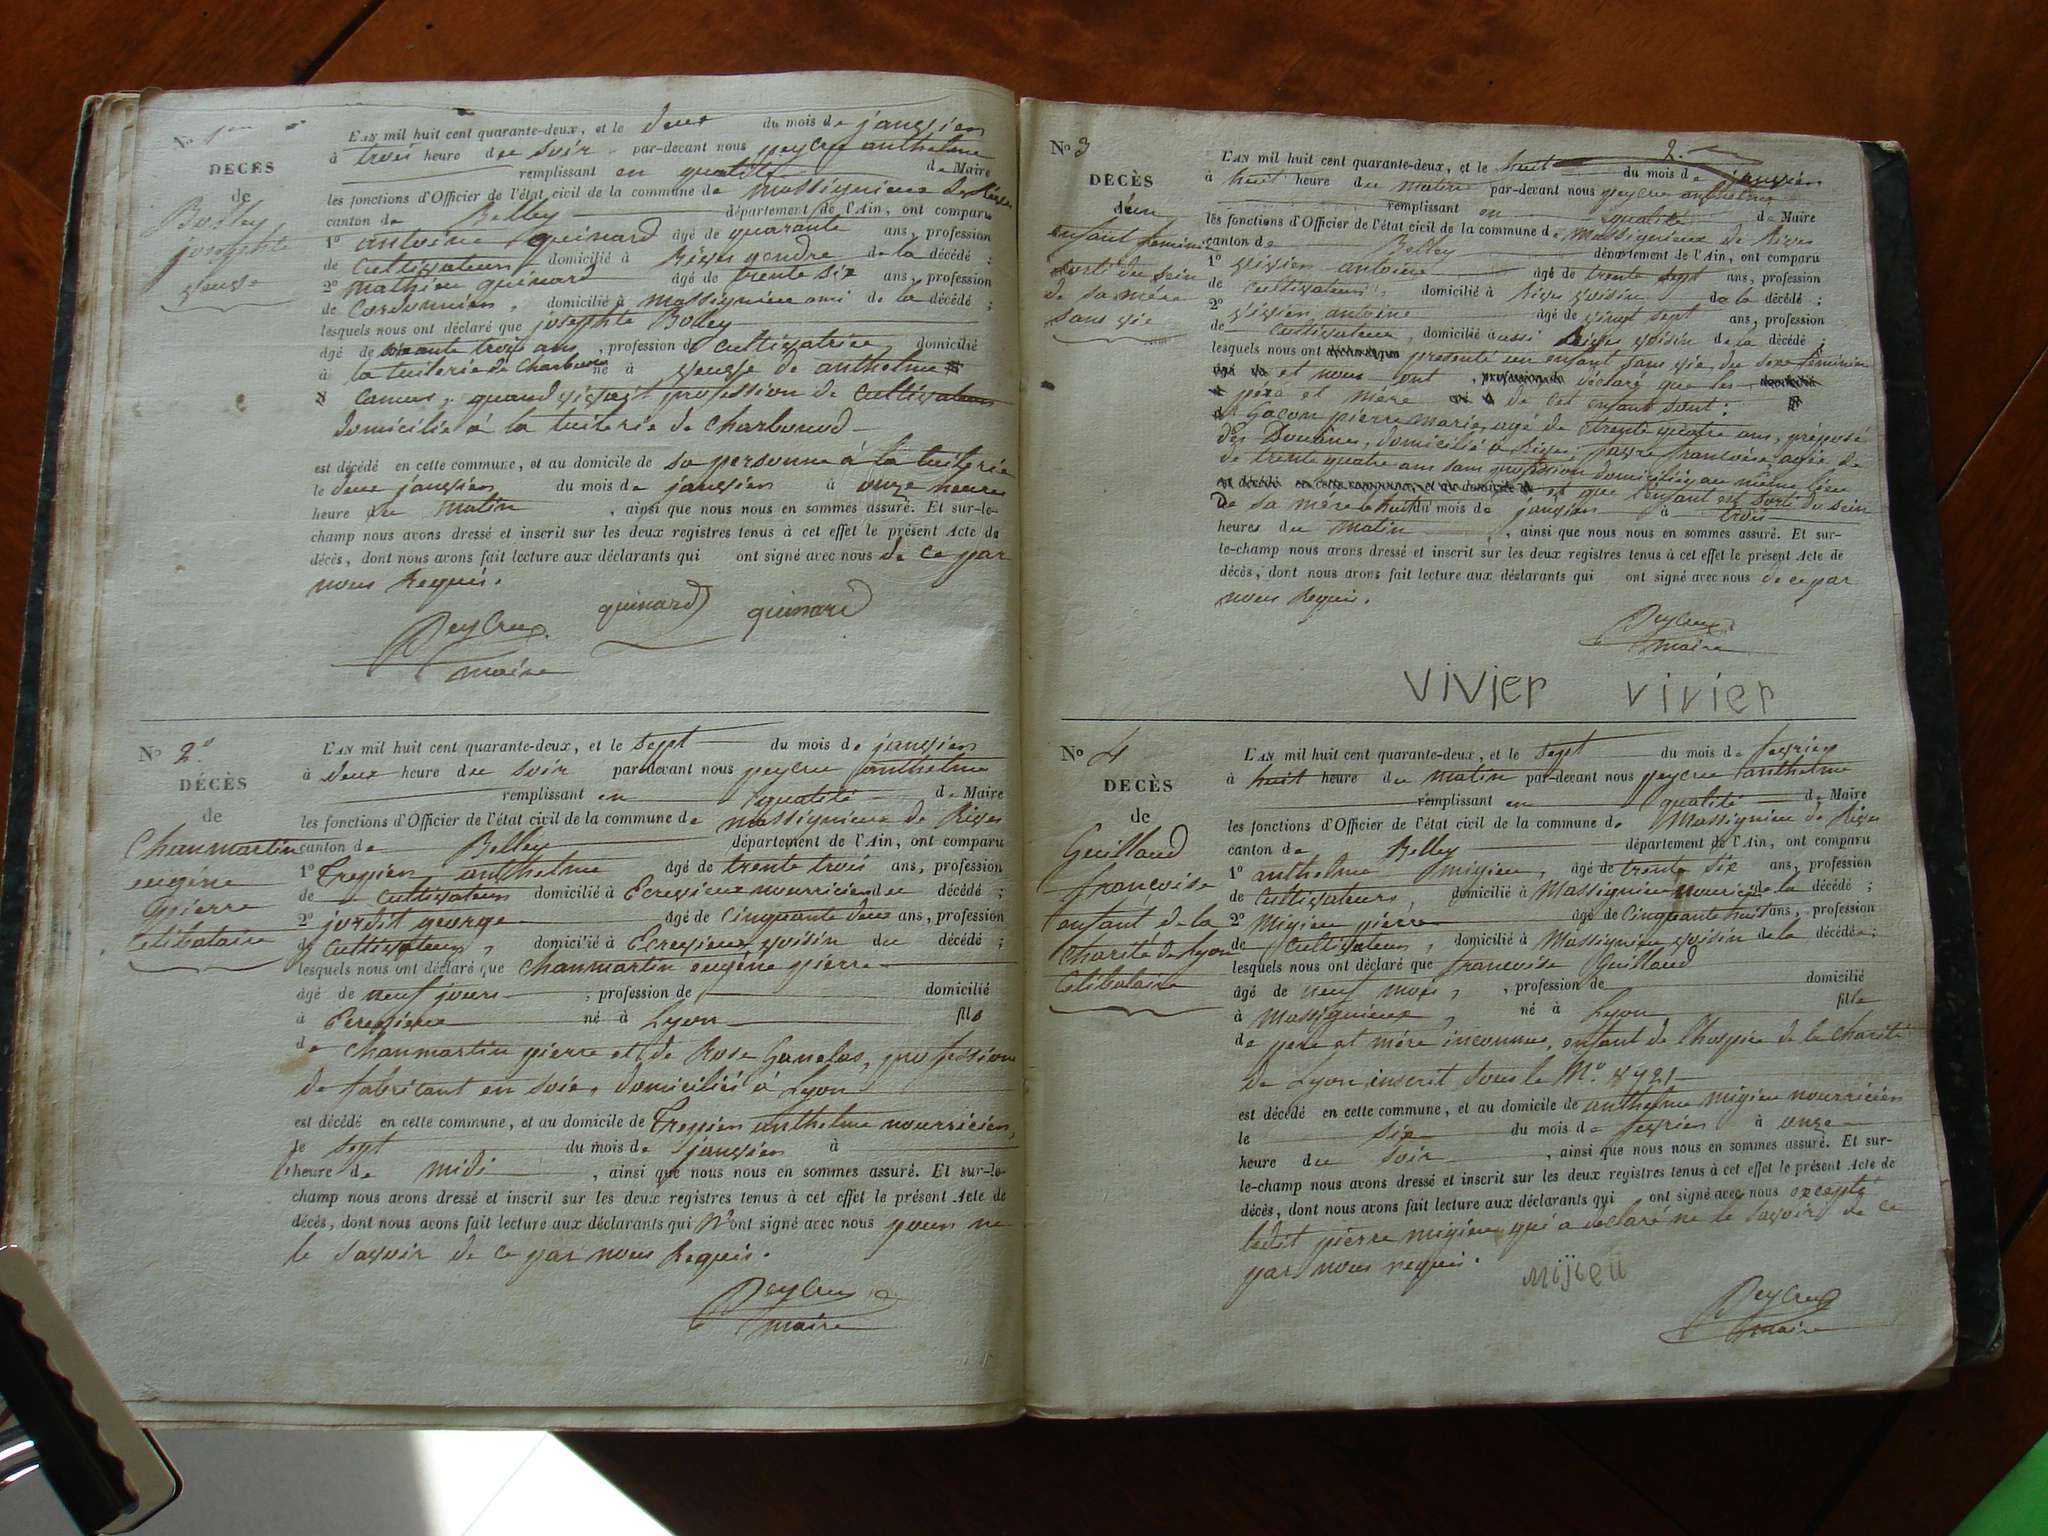 No 1er
DECÈS
de
Bolley
josephte
veuve
L'AN mil huit cent quarante-deux, et le deux du mois de janvier
à trois heure du soir par-devant nous peycru anthelme
remplissant en qualité de Maire
les fonctions d'Officier de l'état civil de la commune de Massignieu de Rives
canton de Belley département de l'Ain, ont comparu
1o antoine guinard âgé de quarante ans, profession
de cultivateur domicilié à Rives gendre de la décédé ;
2o mathieu guinard âgé de trente six ans, profession
de Cordonnier, domicilié à massignieu ami de la décédé ;
lesquels nous ont déclaré que josephte Bolley
âgé de soixante trois ans, profession de cultivatrice, domicilié
à la tuilerie de Charbonod né à veuve de anthelme
Camus, quand vivait profession de cultivateur
domicilié à la tuilerie de Charbonod
est décédé en cette commune, et au domicile de sa personne à la tuilerie
le deux janvier du mois de janvier à onze heures
heure du matin, ainsi que nous nous en sommes assuré. Et sur-le-
champ nous avons dressé et inscrit sur les deux registres tenus à cet effet le présent Acte de
décès, dont nous avons fait lecture aux déclarants qui ont signé avec nous de ce par
nous Requis.
Peycru guinard guinard
maire
No 2o
DÉCÈS
de
Chanmartin
eugéne
pierre
Celibataire
L'AN mil huit cent quarante-deux, et le sept du mois de janvier
à deux heure du soir par-devant nous peycru anthelme
remplissant en qualité de Maire
les fonctions d'Officier de l'état civil de la commune de massignieu de Rives
canton de Belley département de l'Ain, ont comparu
1o Trepier anthelme âgé de trente trois ans, profession
de cultivateur domicilié à Ecrevieux nourricier du décédé ;
2o jordit george âgé de cinquante deux ans, profession
de cultivateur, domicilié à Ecrevieux voisin du décédé ;
lesquels nous ont déclaré que Chanmartin eugéne pierre
âgé de neuf jours, profession de domicilié
à Ecrevieux né à Lyon fils
de Chanmartin pierre et de Rose Ganelas, profession
de fabricant en soie, domiciliés à Lyon
est décédé en cette commune, et au domicile de Trepier anthelme nourricier,
le sept du mois de janvier à
heure de midi, ainsi que nous nous en sommes assuré. Et sur-le-
champ nous avons dressé et inscrit sur les deux registres tenus à cet effet le présent Acte de
décès, dont nous avons fait lecture aux déclarants qui n'ont signé avec nous pour ne
le savoir de ce par nous Requis.
Peycru
maire
2.
No 3
DECÈS
d'un
enfant feminin
sorti du sein
de sa mére
sans vie
L'AN mil huit cent quarante-deux, et le huit du mois de janvier
à huit heure du matin par-devant nous peycru anthelme
remplissant en qualité de Maire
les fonctions d'Officier de l'état civil de la commune de Massignieux de Rives
canton de Belley département de l'Ain, ont comparu
1o vivier antoine âgé de trente sept ans, profession
de cultivateur, domicilié à Rives voisin de la décédé ;
2o vivier antoine âgé de vingt sept ans, profession
de cultivateur, domicilié aussi Rives voisin de la décédé ;
lesquels nous ont présenté un enfant sans vie, du sexe féminin
et nous ont déclaré que les
pére et mére de cet enfant sont :
Gacon pierre marie, agé de trente quatre ans, préposé
des Douanes, domicilié à Rives, favre francoise, agée de
de trente quatre ans sans profession domiciliés au même lieu
est décédé en cette commune, et au domicile de et que l'enfant est sorti du sein
De sa mére le huit du mois de janvier à trois
heures du matin, ainsi que nous nous en sommes assuré. Et sur-
le-champ nous avons dressé et inscrit sur les deux registres tenus à cet effet le présent Acte de
décès, dont nous avons fait lecture aux déclarants qui ont signé avec nous de ce par
nous Requis.
Peycru
maire
vivier vivier
No 4
DECÈS
de
Guilland
françoise
enfant de la
Charité de Lyon
Celibataire
L'AN mil huit cent quarante-deux, et le sept du mois de fevrier
à huit heure du matin par-devant nous peycru anthelme
remplissant en qualité de Maire
les fonctions d'Officier de l'état civil de la commune de Massignieu de Rives
canton de Belley département de l'Ain, ont comparu
1o anthelme migieu, âgé de trente six ans, profession
de cultivateurs, domicilié à Massignieu nourricier de la décédé ;
2o Migieu pierre âgé de cinquante huit ans, profession
de cultivateur, domicilié à Massignieu voisin de la décédée ;
lesquels nous ont déclaré que francoise Guilland
âgé de neuf mois, profession de domicilié
à Massignieux, né à Lyon fille
de pere et mére inconnus, enfant de l'hospice de la Charité
de Lyon inscrit sous le No.
est décédé en cette commune, et au domicile de anthelme migieu nourricier
le six du mois de fevrier à onze
heure du soir, ainsi que nous nous en sommes assuré. Et sur-
le-champ nous avons dressé et inscrit sur les deux registres tenus à cet effet le présent Acte de
décès, dont nous avons fait lecture aux déclarants qui ont signé avec nous excepté
ledit pierre migieu qui a declaré ne le savoir de ce
par nous requis.
mijieu
Peycru
maire